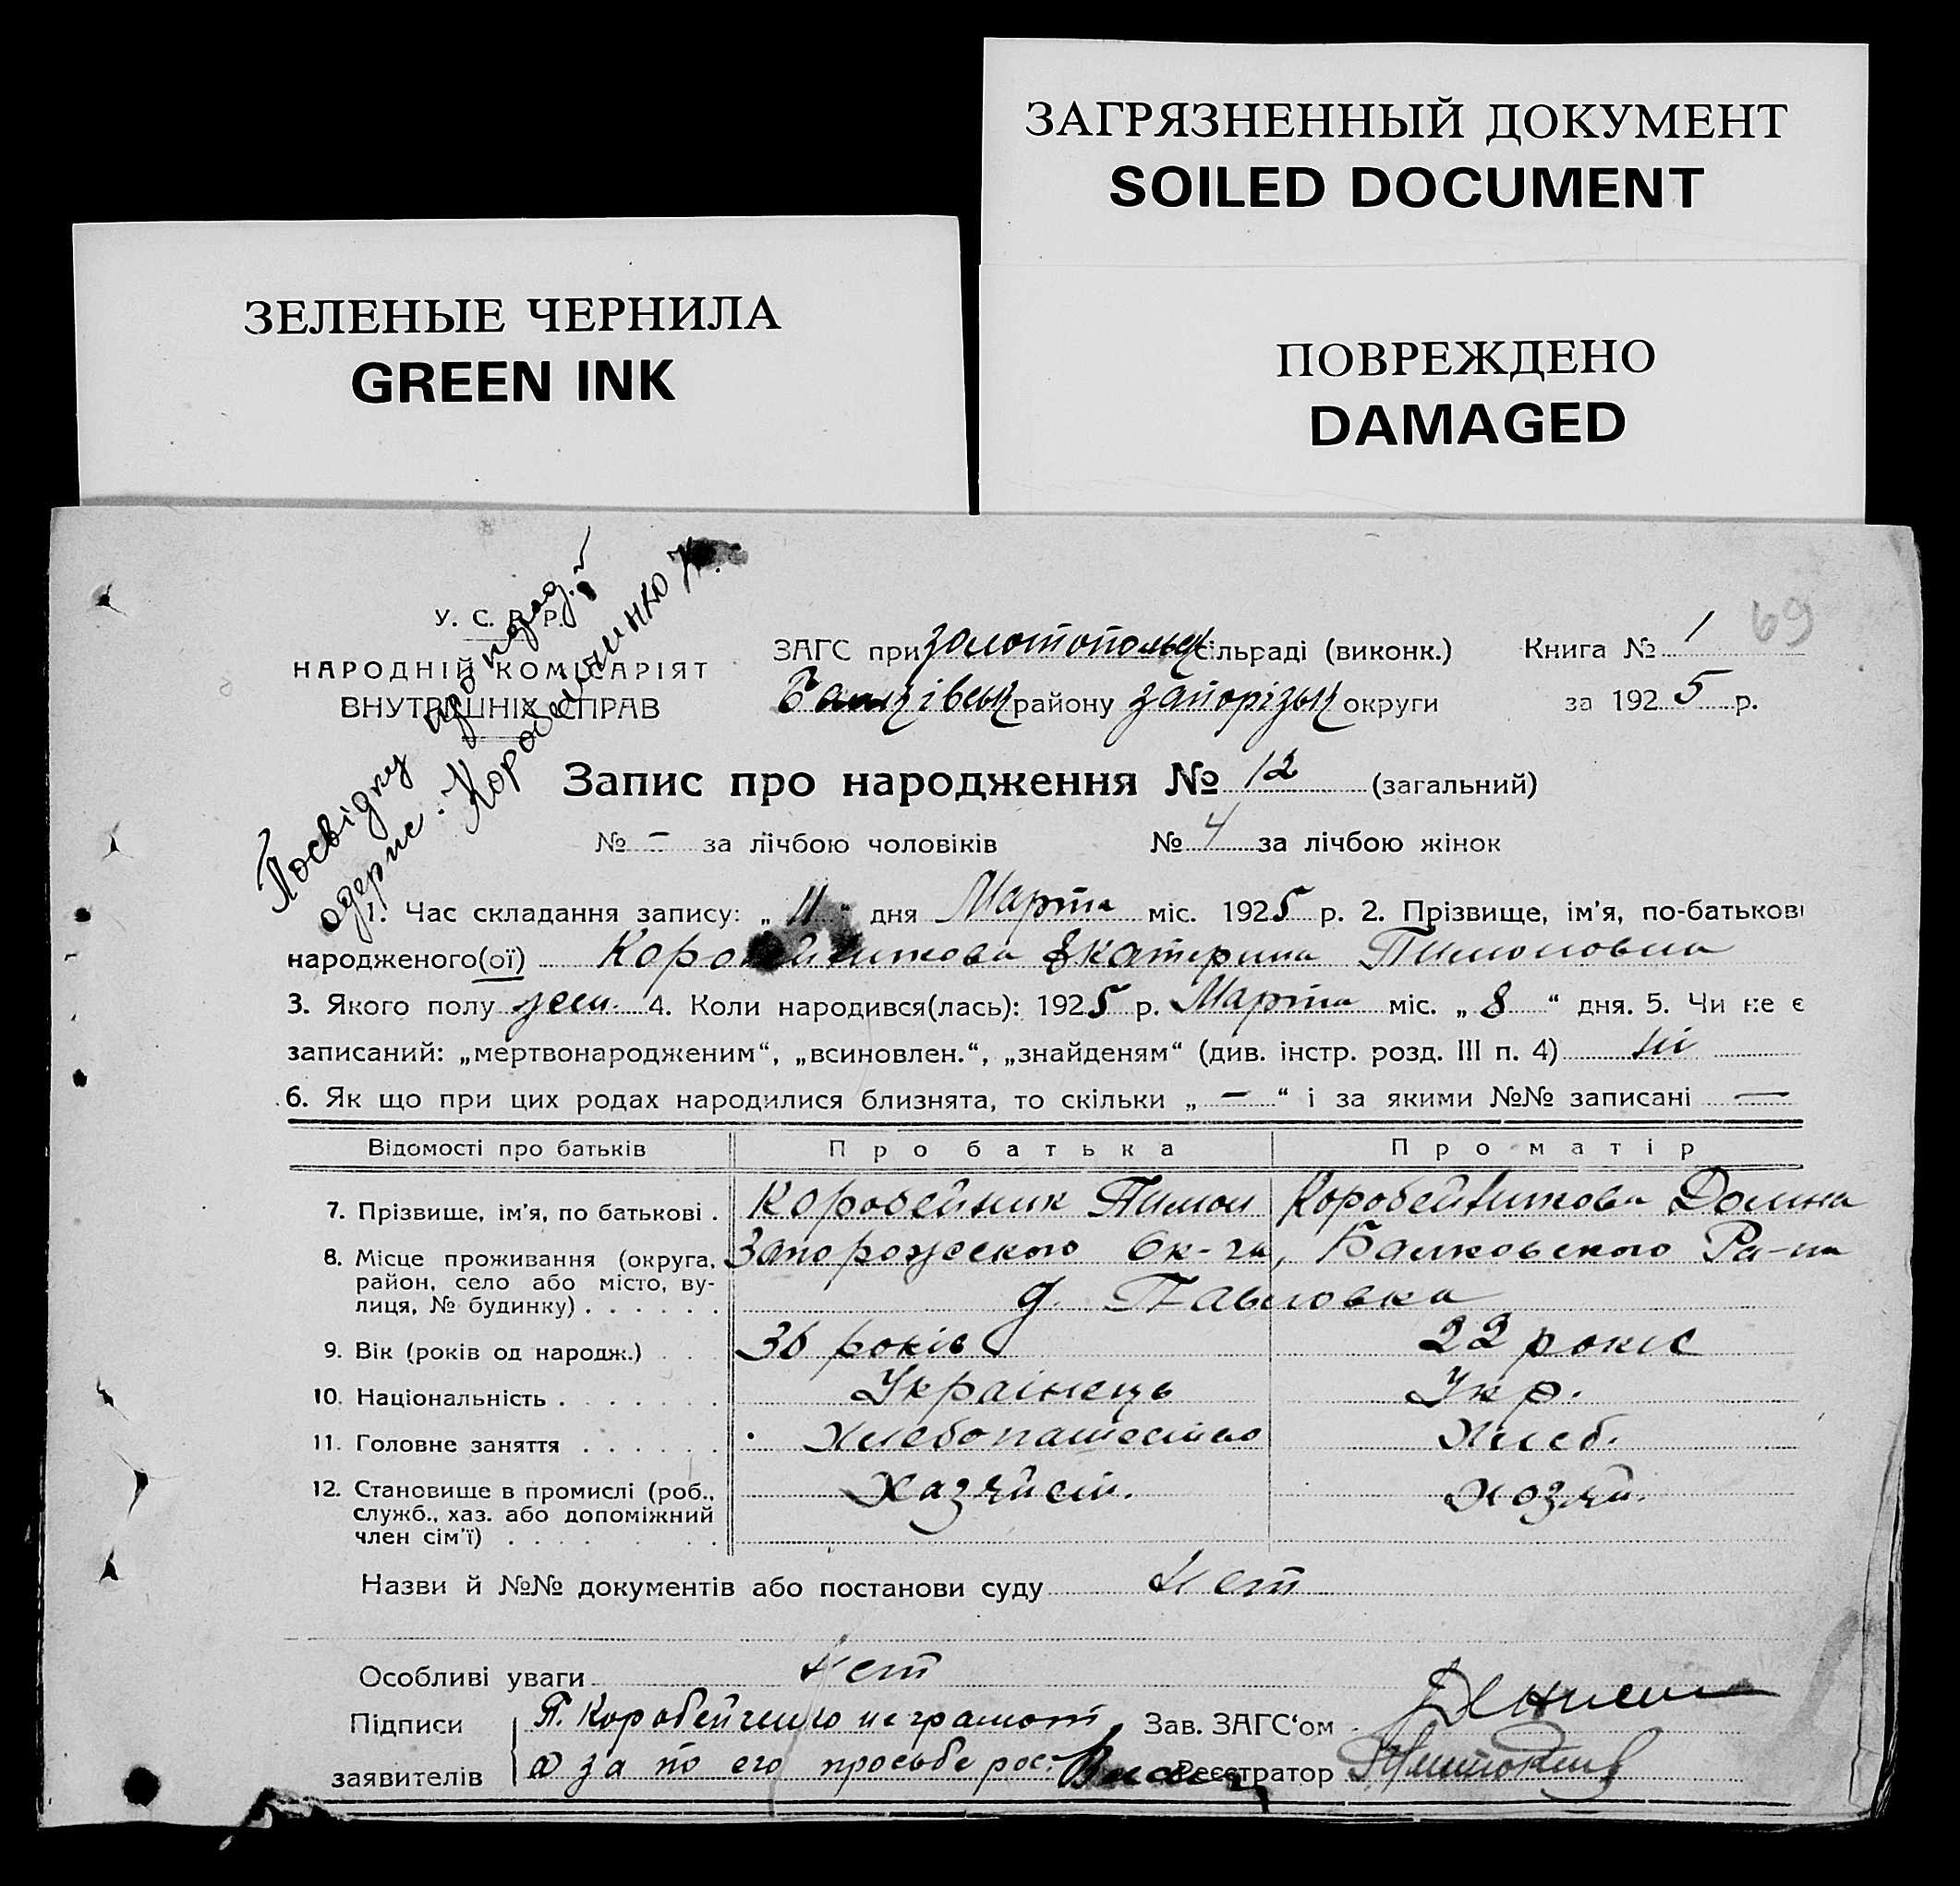 ЗАГРЯЗНЕННЫЙ ДОКУМЕНТ
SOILED DOCUMENT
ЗЕЛЕНЫЕ ЧЕРНИЛА
GREEN INK
ПОВРЕЖДЕНО
DAMAGED
69
Посвідку про нарад.
одерже. Коробейченко
У. С. Р. Р.
НАРОДНІЙ КОМІСАРІЯТ
ВНУТРІШНІХ СПРАВ
ЗАГС при Золотопольск сільраді (виконк.) Книга № 1
Балківськ району Запорізьк округи за 1925 р.
Запис про народження № 12 (загальний)
№ – за лічбою чоловіків № 4 за лічбою жінок
1. Час складання запису: „11“ дня Марта міс. 1925 р. 2. Прізвище, ім'я, по-батькові
народженого(ої) Коробейникова Екатерина Тимоновна
3. Якого полу жен. 4. Коли народився(лась): 1925 р. Марта міс. „8“ дня. 5. Чи не є
записаний: „мертвонародженим“, „всиновлен.“, „знайденям“ (див. інстр. розд. III п. 4) ні
6. Як що при цих родах народилися близнята, то скільки „–“ і за якими №№ записані —
Відомості про батьків Про батька Про матір
7. Прізвище, ім'я, по батькові . Коробейник Тимон Коробейникова Домна
8. Місце проживання (округа, Запорожского Ок-га, Балковского Ра-на
район, село або місто, ву-
лиця, № будинку) . . . . . . д. Павловка
9. Вік (років од народж.) . . . 36 років 22 років
10. Національність . . . . . . . Українець Укр.
11. Головне заняття . . . . . . Хлебопашество Хлеб.
12. Становище в промислі (роб., Хазяйст. Хозяй.
служб., хаз. або допоміжний
член сім'ї) . . . . . . .
Назви й №№ документів або постанови суду Нет
Особливі уваги Нет
Підписи Т. Коробейченко неграмот Зав. ЗАГС'ом
заявителів а за по его просьбе рос. Реєстратор